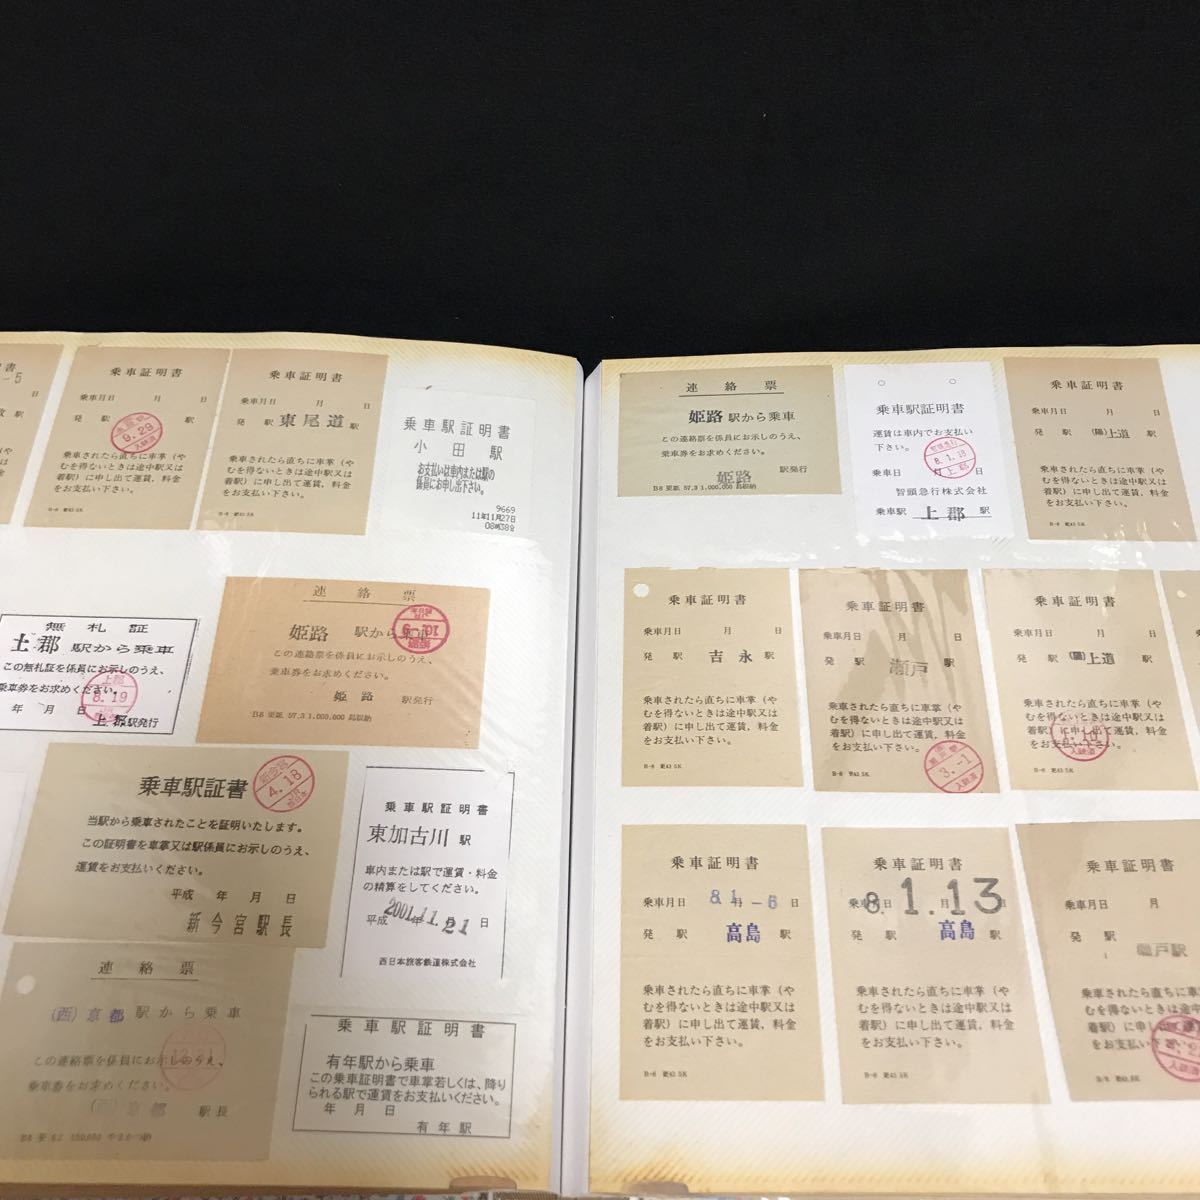 乗車証明書
乗車月日 月 日
発 駅 駅
9.29
乗車されたら直ちに車掌（や
むを得ないときは途中駅又は
着駅）に申し出て運賃，料金
をお支払い下さい。
乗車証明書
乗車月日 月 日
発 駅 東尾道 駅
乗車されたら直ちに車掌（や
むを得ないときは途中駅又は
着駅）に申し出て運賃，料金
をお支払い下さい。
乗車駅証明書
小田 駅
お支払いは車内または駅の
係員にお申し出下さい。
9669
11年11月27日
08時38分
無札証
上郡 駅から乗車
この無札証を係員にお示しのうえ、
乗車券をお求めください。
年 月 日
上郡駅発行
上郡
8.19
連絡票
姫路 駅から乗車
この連絡票を係員にお示しのうえ、
乗車券をお求めください。
姫路 駅発行
乗車駅証書
新今宮
4.18
当駅から乗車されたことを証明いたします。
この証明書を車掌又は駅係員にお示しのうえ、
運賃をお支払いください。
平成 年 月 日
新今宮駅長
乗車駅証明書
東加古川 駅
車内または駅で運賃・料金
の精算をしてください。
平成 年 月 日
2001.11.21
西日本旅客鉄道株式会社
連絡票
(西)京都 駅から乗車
この連絡票を係員にお示しのうえ、
乗車券をお求めください。
京都 駅長
乗車駅証明書
有年駅から乗車
この乗車証明書で車掌若しくは、降り
られる駅で運賃をお支払いください。
年 月 日
有年駅
連絡票
姫路 駅から乗車
この連絡票を係員にお示しのうえ、
乗車券をお求めください。
姫路 駅発行
乗車駅証明書
運賃は車内でお支払い
下さい。
乗車日 月 日
8.1.13
上郡
智頭急行株式会社
乗車駅 上郡 駅
乗車証明書
乗車月日 月 日
発 駅 上道 駅
乗車されたら直ちに車掌（や
むを得ないときは途中駅又は
着駅）に申し出て運賃，料金
をお支払い下さい。
乗車証明書
乗車月日 月 日
発 駅 吉永 駅
乗車されたら直ちに車掌（や
むを得ないときは途中駅又は
着駅）に申し出て運賃，料金
をお支払い下さい。
乗車証明書
乗車月日 月 日
発 駅 瀬戸 駅
乗車されたら直ちに車掌（や
むを得ないときは途中駅又は
着駅）に申し出て運賃，料金
をお支払い下さい。
3.-1
乗車証明書
乗車月日 月 日
発 駅 上道 駅
乗車されたら直ちに車掌（や
むを得ないときは途中駅又は
着駅）に申し出て運賃，料金
をお支払い下さい。
乗車証明書
乗車月日 月 日
発 駅 高島 駅
乗車されたら直ちに車掌（や
むを得ないときは途中駅又は
着駅）に申し出て運賃，料金
をお支払い下さい。
乗車証明書
乗車月日 月 日
8.1.13
発 駅 高島 駅
乗車されたら直ちに車掌（や
むを得ないときは途中駅又は
着駅）に申し出て運賃，料金
をお支払い下さい。
乗車証明書
乗車月日 月
発 駅
瀬戸駅
乗車されたら直ちに車掌（や
むを得ないときは途中駅又は
着駅）に申し出て運賃，料金
をお支払い下さい。